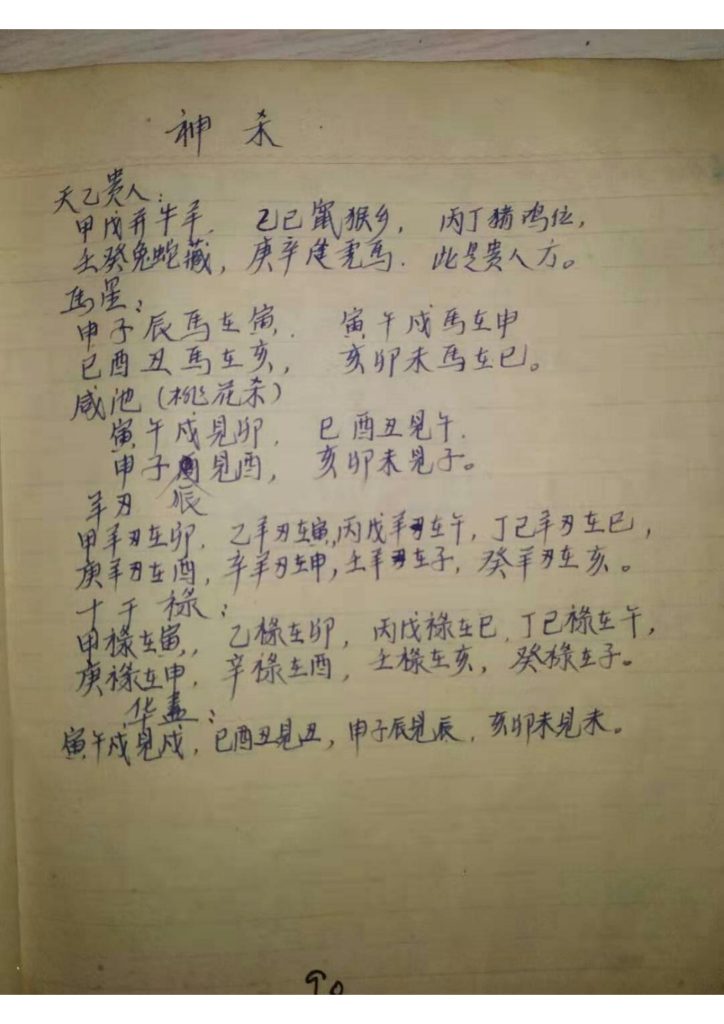 神杀
天乙贵人：
甲戊并牛羊，乙己鼠猴乡，丙丁猪鸡位，
壬癸兔蛇藏，庚辛逢虎马．此是贵人方。
马星：
申子辰馬在寅，寅午戌馬在申
巳酉丑馬在亥，亥卯未馬在巳。
咸池（桃花杀）
寅午戌見卯，巳酉丑見午．
申子辰見酉，亥卯未見子。
羊刃
甲羊刃在卯，乙羊刃在寅，丙戊羊刃在午，丁己羊刃在巳，
庚羊刃在酉，辛羊刃在申，壬羊刃在子，癸羊刃在亥。
十干禄：
甲禄在寅，，乙禄在卯，丙戊禄在巳，丁己禄在午，
庚禄在申，辛禄在酉，壬禄在亥，癸禄在子。
华盖：
寅午戌見戌，巳酉丑見丑，申子辰見辰，亥卯未見未。
90